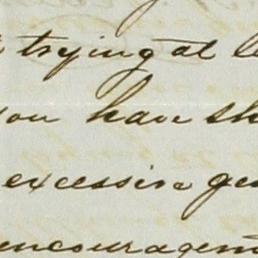 trying at
you have
excessive
encouragem